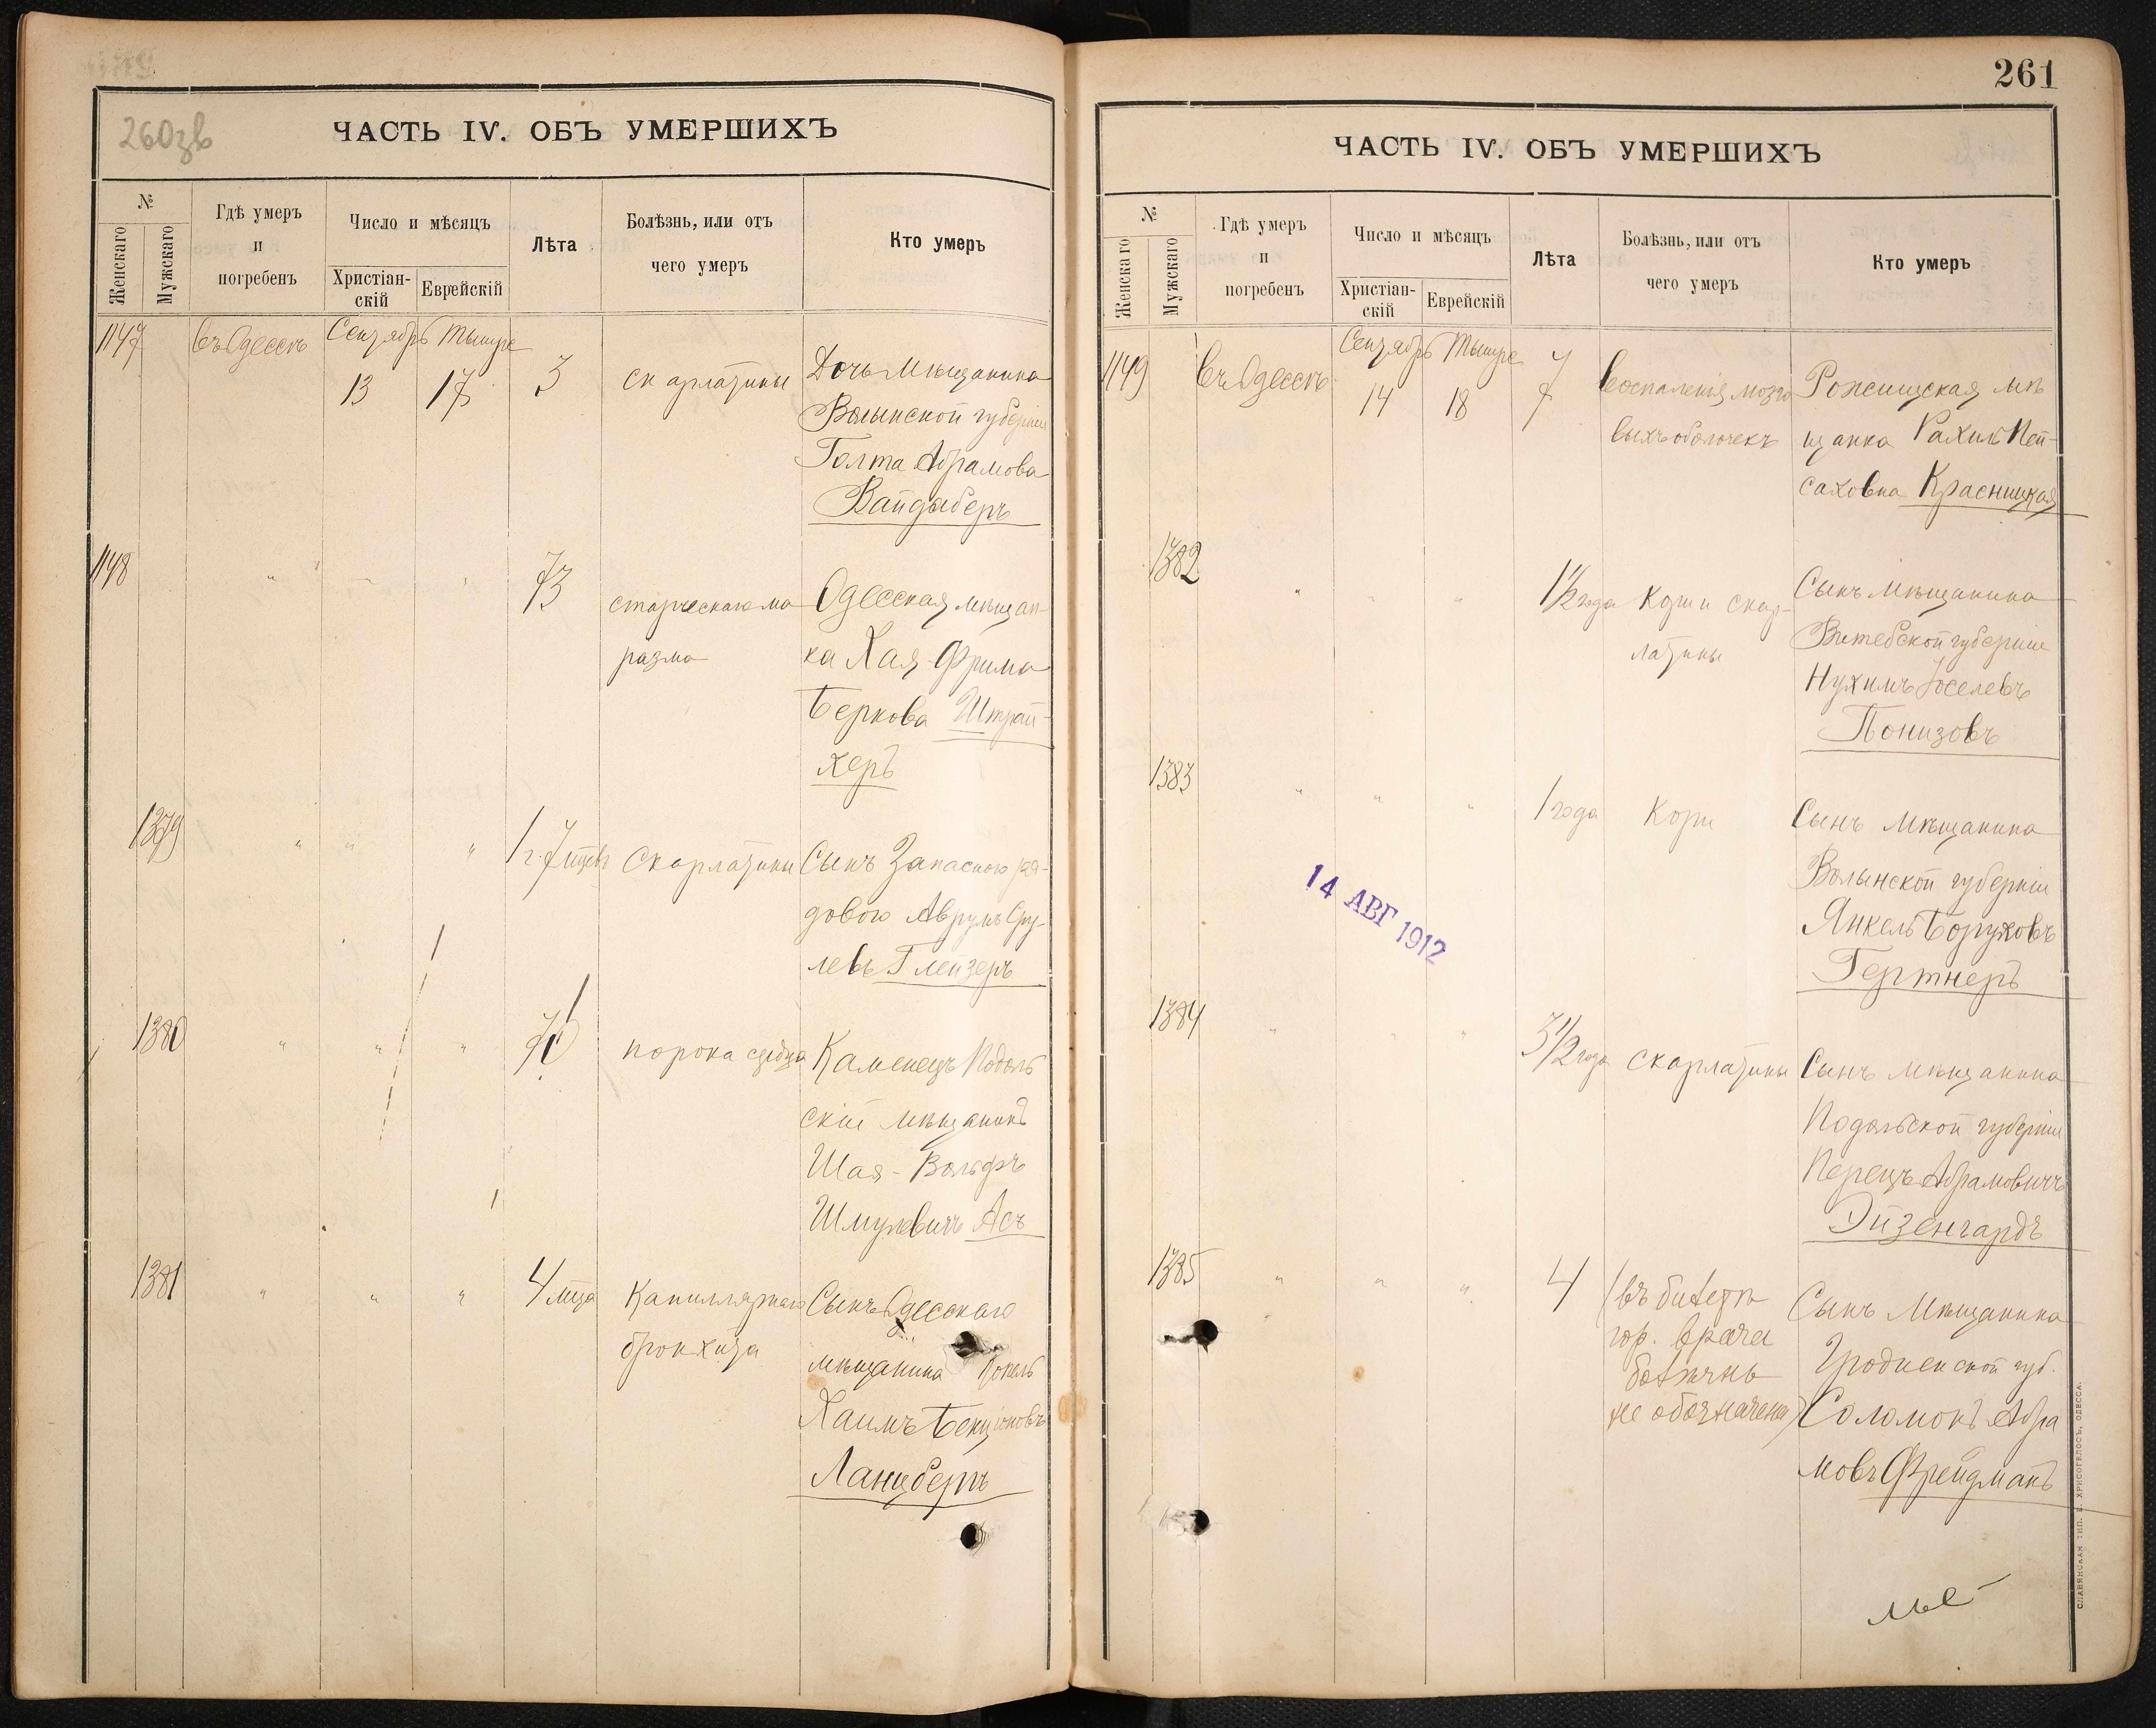 260зв
ЧАСТЬ IV. ОБЪ УМЕРШИХЪ
№
Женскаго
Мужскаго
Гдѣ умеръ
и
погребенъ
Число и мѣсяцъ
Христіан-
скій
Еврейскій
Лѣта
Болѣзнь, или отъ
чего умеръ
Кто умеръ
1147
въ Одессѣ
Сентябрь
13
Тышре
17
3
скарлатины
Дочь мѣщанина
Волынской губерніи
Голта Абрамова
Вайдаберъ
1148
" " " "
73
старческаго ма
разма
Одесская мѣщан-
ка Хая-Фрима
Беркова Штрай-
херъ
1379
" " "
1 г. 7 мцевъ
Скарлатины
Сынъ Запасного ря-
дового Аврумъ Сру-
левъ Глейзеръ
1380
" " "
70
порока сердца
Каменецъ Подоль
скій мѣщанинъ
Шая-Вольфъ
Шмулевичъ Асъ
1381
" " "
4 мца
Капиллярнаго
бронхита
Сынъ Одесскаго
мѣщанина
Хаимъ
Ланцбергъ
261
ЧАСТЬ IV. ОБЪ УМЕРШИХЪ
№
Женскаго
Мужскаго
Гдѣ умеръ
и
погребенъ
Число и мѣсяцъ
Христіан-
скій
Еврейскій
Лѣта
Болѣзнь, или отъ
чего умеръ
Кто умеръ
1149
въ Одессѣ
Сентябрь
14
Тышре
18
7
воспаленія мозго
выхъ оболочекъ
Рожищская мѣ
щанка Рахиль Пей-
саховна Красницкая
1382
" " "
1½ года
Кори и скар-
латины
Сынъ мѣщанина
Витебской губерніи
Нухимъ Іоселевъ
Понизовъ
1383
" " "
1 года
Кори
Сынъ мѣщанина
Волынской губерніи
Янкель Боруховъ
Гертнеръ
14 АВГ 1912
1384
" " "
3½ года
скарлатины
Сынъ мѣщанина
Подольской губерніи
Перецъ Абрамовичъ
Эйзенгардъ
1385
" " "
4
(въ билетѣ
гор. врача
болѣзнь
не обозначена)
Сынъ Мѣщанина
Гродненской губ.
Соломонъ Абра
мовъ Фрейдманъ
СЛАВЯНСКАЯ ТИП. Е. ХРИСОГЕЛОСЪ, ОДЕССА.